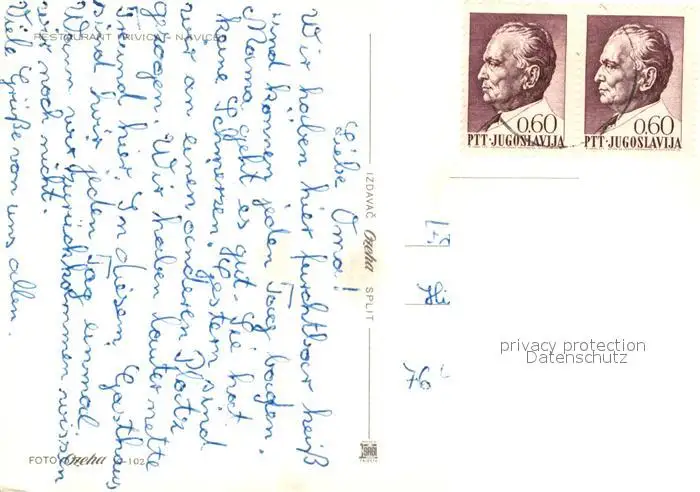 RESTAURANT PRIVICA - NAVICE
Liebe Oma!
Wir haben hier furchtbar heiß
und können jeden Tag baden.
Mama geht es gut. Sie hat
keine Schmerzen. Gestern sind
wir an einen anderen Platz
gezogen. Wir haben lauter nette
Freund hier. In diesem Gasthaus
sind wir jeden Tag einmal.
Wann wir zurückkommen wissen
wir noch nicht.
Viele Grüße von uns allen.
FOTO Ozeha
-102
IZDAVAČ Ozeha SPLIT
0.60
PTT·JUGOSLAVIJA
0.60
PTT·JUGOSLAVIJA
privacy protection
Datenschutz